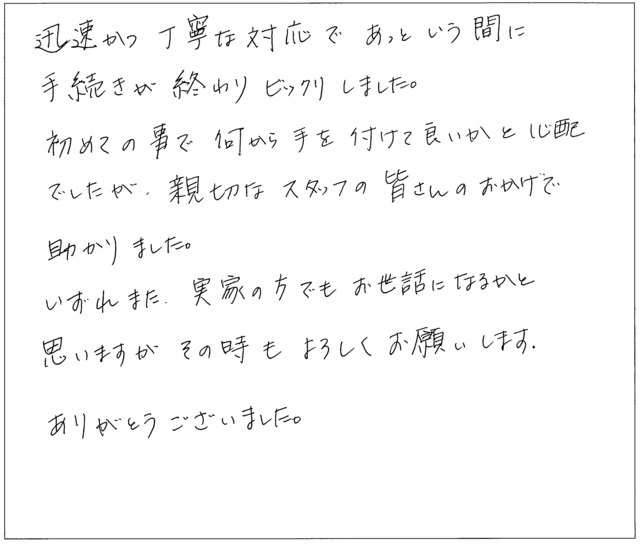 迅速かつ丁寧な対応であっという間に
手続きが終わりビックリしました。
初めての事で何から手を付けて良いかと心配
でしたが、親切なスタッフの皆さんのおかげで
助かりました。
いずれまた、実家の方でもお世話になるかと
思いますがその時もよろしくお願いします.
ありがとうございました。